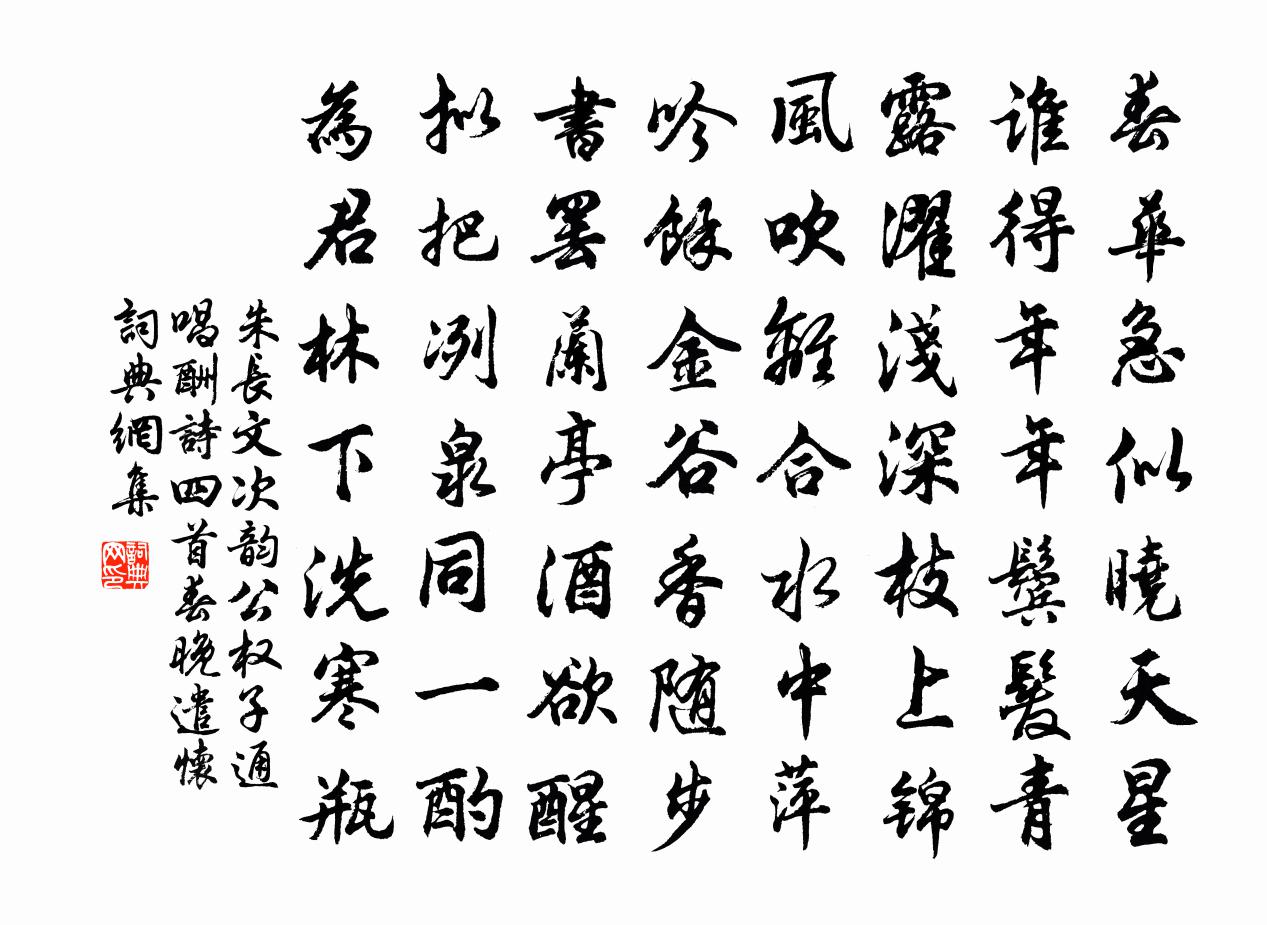 春華急似曉天星
誰得年年鬢髮青
露濯淺深枝上錦
風吹離合水中萍
吟餘金谷香随步
書罷蘭亭酒欲醒
拟把冽泉同一酌
為君林下洗寒瓶
朱長文次韵公权子通
唱酬詩四首春晚遣懷
詞典網集
詞典
网印